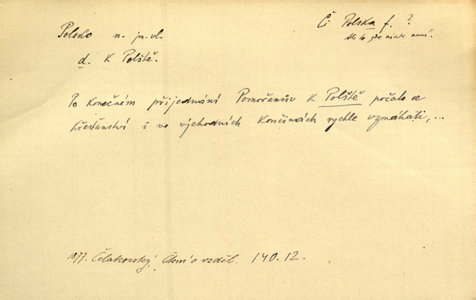 Polsko n. jm. vl.
Či Polska f.?
d. K Polště.
Po konečném přijednání Pomořanův K Polště počalo se
křesťanství i na východních Končinách rychle vzmáhati,...
1877. Čelakovský, Čtení o vzděl. 140.12.